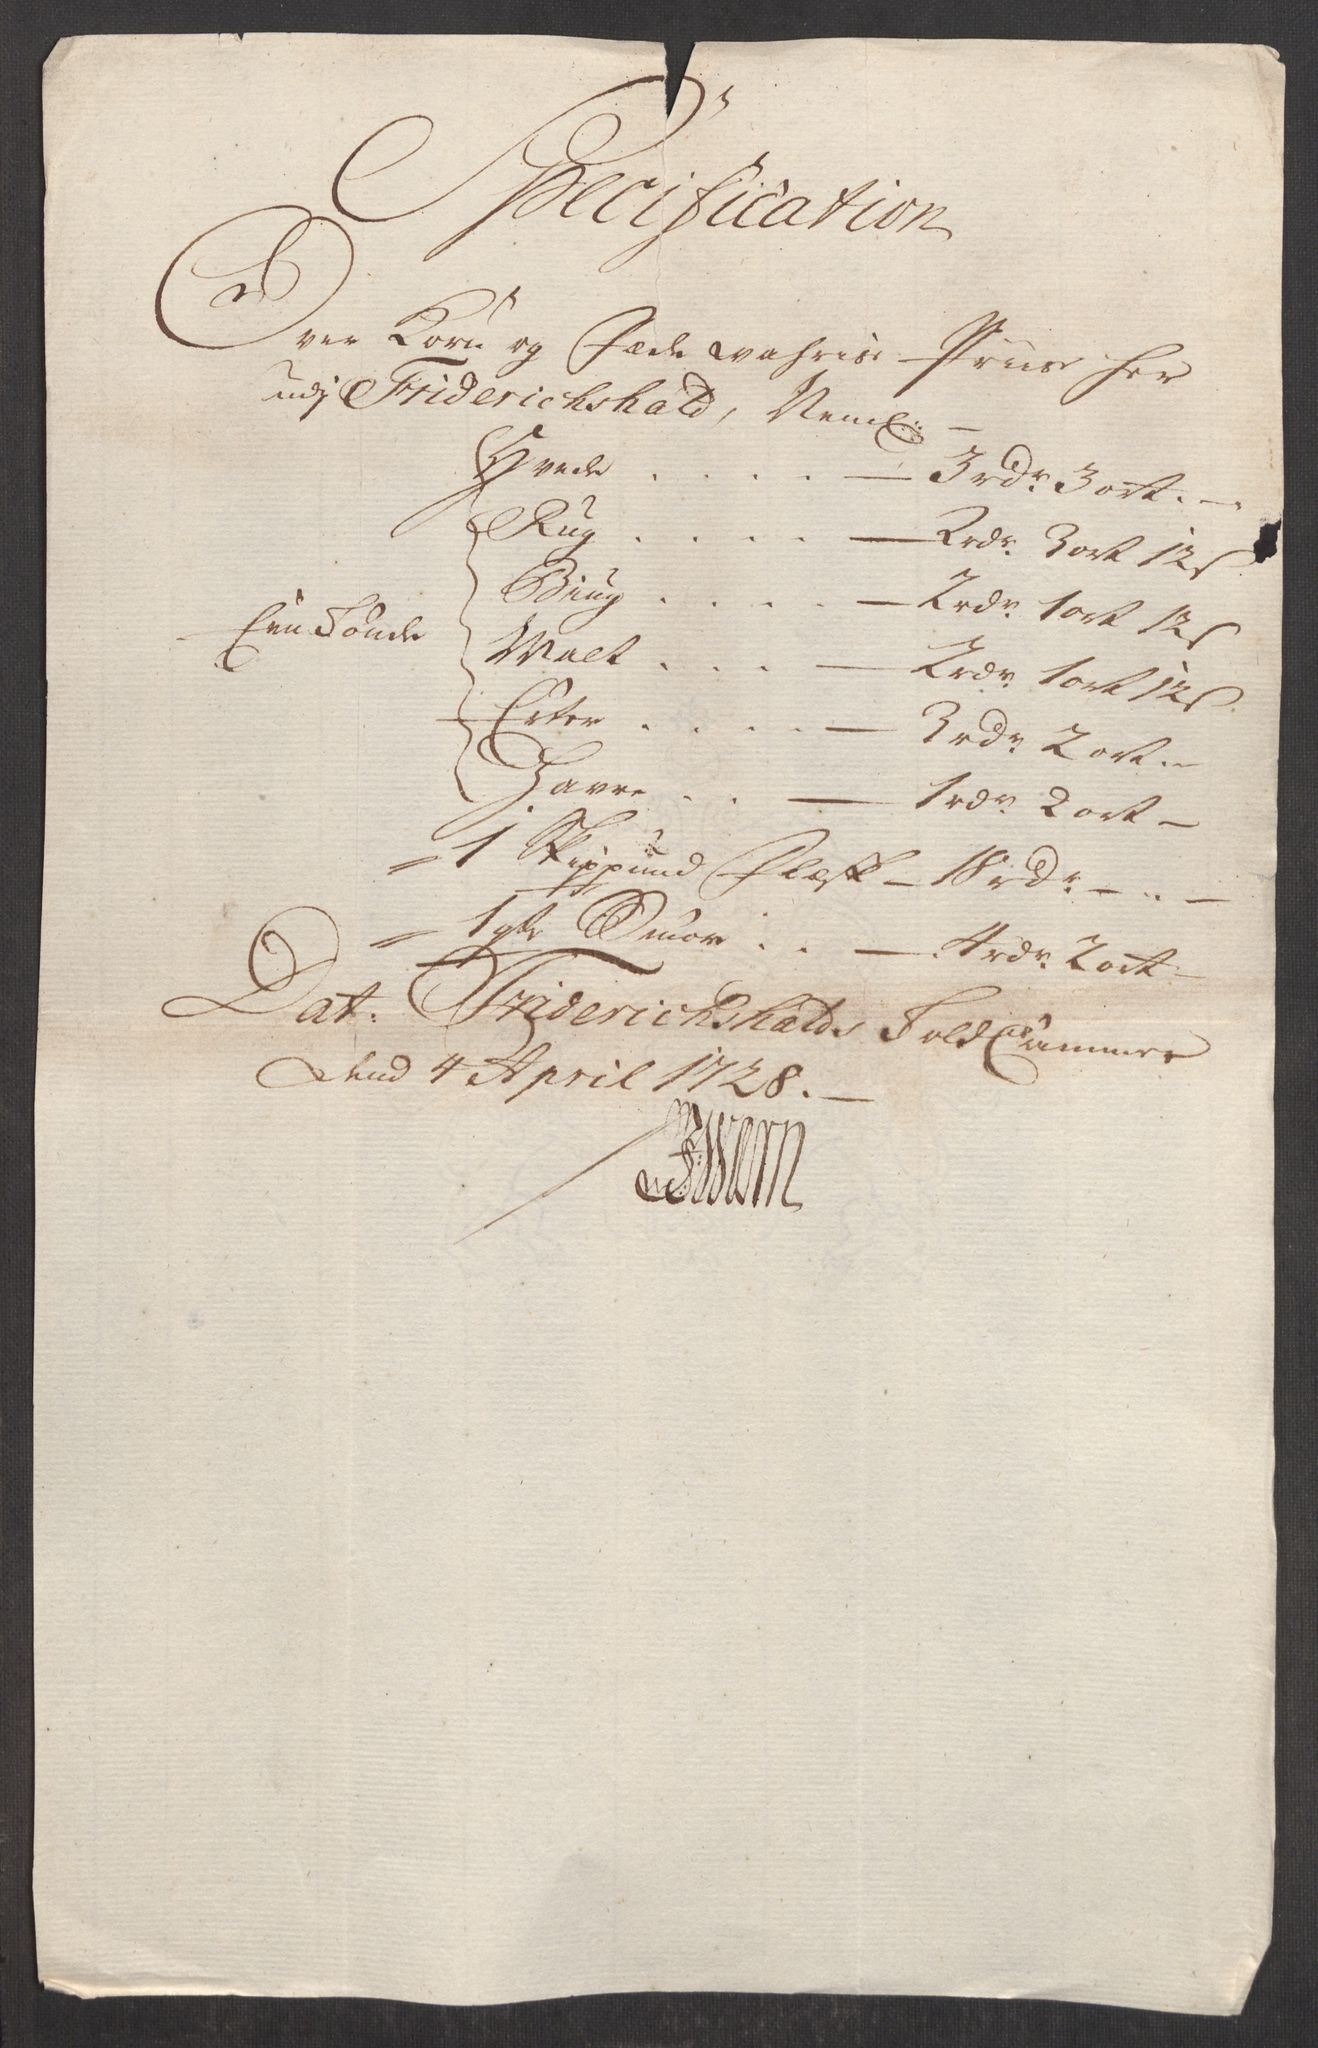 Specification
Over Korn og Fæde wahris Priis her
udj Friderichshald, Neml:
Hvede . . . . — 3 rdr. 3 ort. —
Rug . . . . — 2 rdr. 3 ort 12 s
Biug . . . . — 2 rdr. 1 ort 12 s
Een Tönde
Malt . . . — 2 rdr. 1 ort 12 s.
Erter . . . . — 3 rdr. 2 ort. —
Havre . . — 1 rdr. 2 ort —
" 1 Skippund Flesk — 18 rdr. — . . —
" 1 Smör . . — 4 rdr. 2 ort —
Dat. Friderichshalds Told Cammer
dend 4 April 1728. —